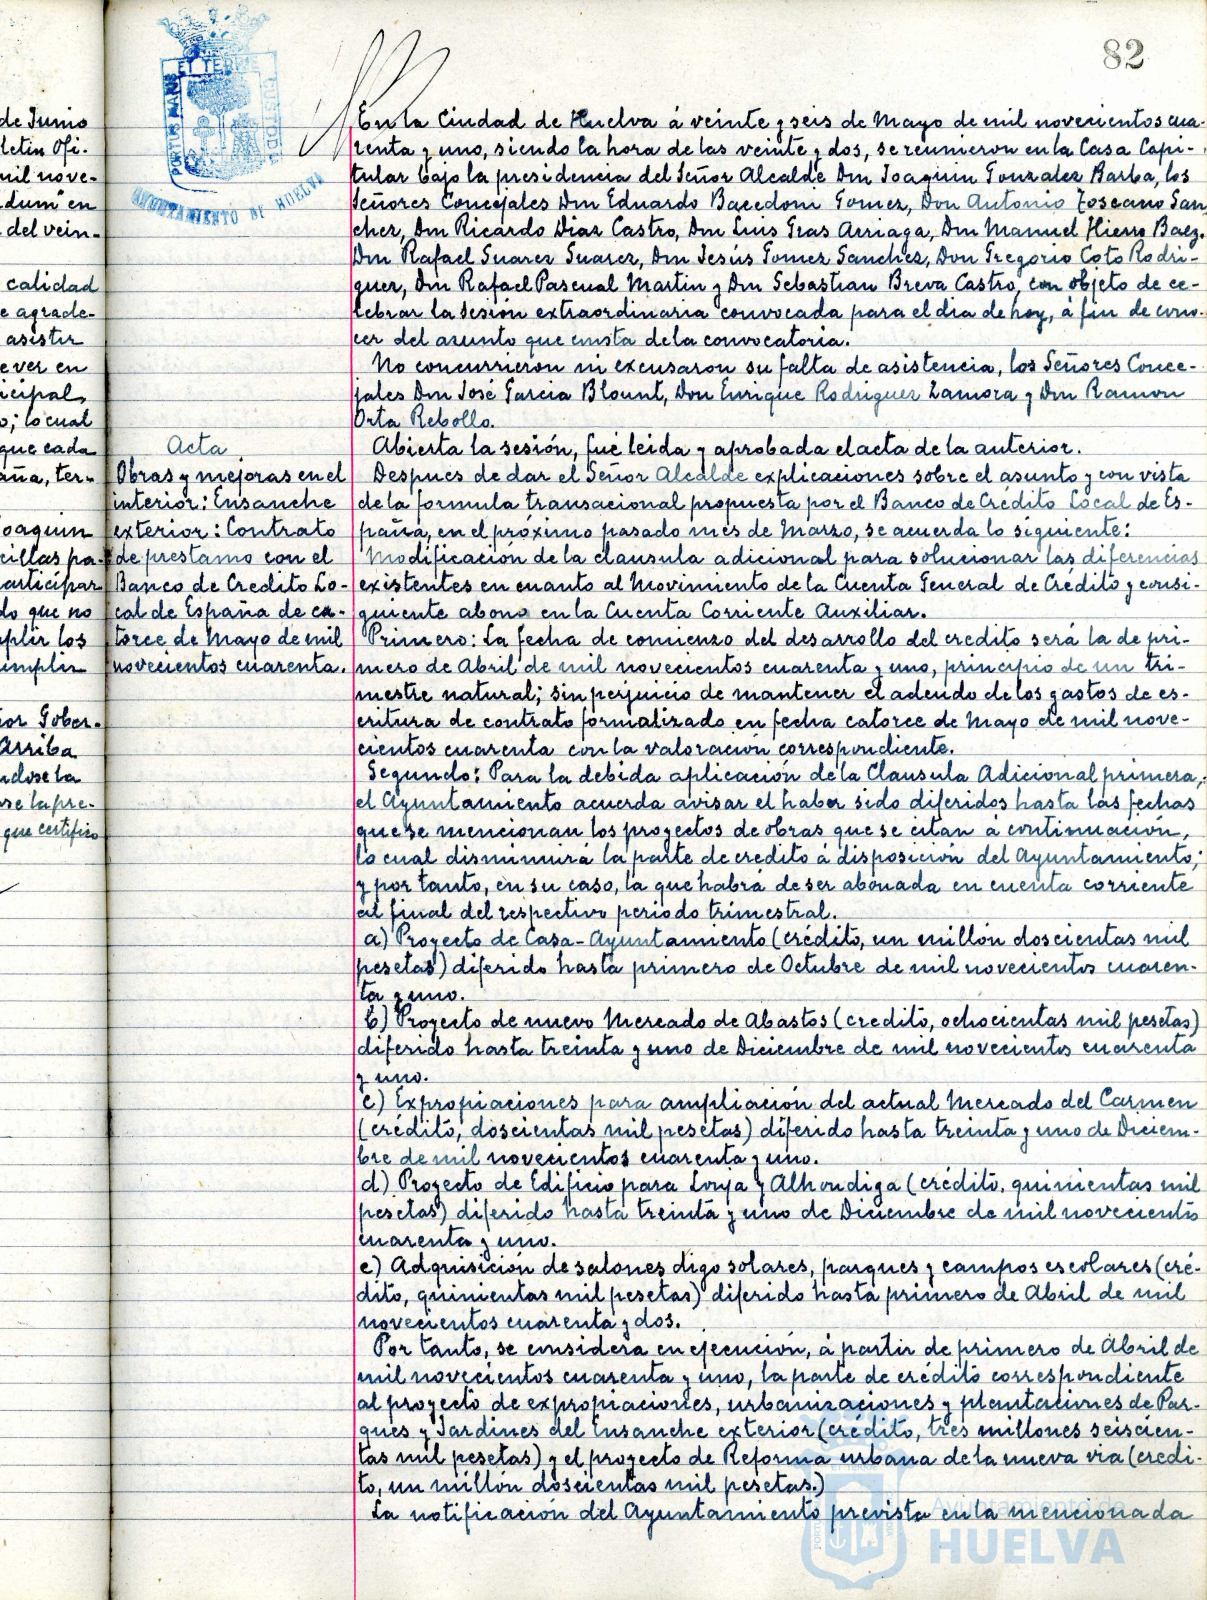 82
PORTUS MARIS ET TERRE CUSTODIA
AYUNTAMIENTO DE HUELVA
de Junio
letin Ofi-
mil nove-
dum" en
del vein-
calidad
e agrade-
asistir
ever en
icipal,
o; lo cual
que cada
aña, ter-
oaquin
cillas pa-
articipar
do que no
mplir los
umplir
ior Gober-
Arriba
ndose la
se la pre-
que certifico
Acta
Obras y mejoras en el
interior: Ensanche
exterior: Contrato
de prestamo con el
Banco de Credito Lo-
cal de España de ca-
torce de Mayo de mil
novecientos cuarenta.
En la Ciudad de Huelva á veinte y seis de Mayo de mil novecientos cua-
renta y uno, siendo la hora de las veinte y dos, se reunieron en la Casa Capi-
tular bajo la presidencia del Señor Alcalde Don Joaquin Gonzalez Barba, los
Señores Concejales Don Eduardo Bacedoni Gomez, Don Antonio Toscano San-
chez, Don Ricardo Diaz Castro, Don Luis Gras Arriaga, Don Manuel Hierro Baez.
Don Rafael Suarez Suarez, Don Jesús Gomez Sanchez, Don Gregorio Coto Rodri-
guez, Don Rafael Pascual Martin y Don Sebastian Breva Castro, con objeto de ce-
lebrar la sesión extraordinaria convocada para el dia de hoy, á fin de cono-
cer del asunto que consta de la convocatoria.
No concurrieron ni excusaron su falta de asistencia, los Señores Conce-
jales Don José Garcia Blount, Don Enrique Rodriguez Zamora y Don Ramon
Orta Rebollo.
Abierta la sesión, fué leida y aprobada el acta de la anterior.
Despues de dar el Señor Alcalde explicaciones sobre el asunto y con vista
de la formula transacional propuesta por el Banco de Crédito Local de Es-
paña, en el próximo pasado mes de Marzo, se acuerda lo siguiente:
Modificación de la clausula adicional para solucionar las diferencias
existentes en cuanto al Movimiento de la Cuenta General de Crédito y consi-
guiente abono en la Cuenta Corriente Auxiliar.
Primero: La fecha de comienzo del desarrollo del credito será la de pri-
mero de Abril de mil novecientos cuarenta y uno, principio de un tri-
mestre natural; sin perjuicio de mantener el adeudo de los gastos de es-
critura de contrato formalizado en fecha catorce de Mayo de mil nove-
cientos cuarenta con la valoración correspondiente.
Segundo: Para la debida aplicación de la Clausula Adicional primera,
el Ayuntamiento acuerda avisar el haber sido diferidos hasta las fechas
que se mencionan los proyectos de obras que se citan á continuación,
lo cual disminuirá la parte de credito á disposición del Ayuntamiento;
y por tanto, en su caso, la que habrá de ser abonada en cuenta corriente
al final del respectivo periodo trimestral.
a) Proyecto de Casa-Ayuntamiento (crédito, un millón doscientas mil
pesetas) diferido hasta primero de Octubre de mil novecientos cuaren-
ta y uno.
b) Proyecto de nuevo Mercado de Abastos (credito, ochocientas mil pesetas)
diferido hasta treinta y uno de Diciembre de mil novecientos cuarenta
y uno.
c) Expropiaciones para ampliación del actual Mercado del Carmen
(crédito, doscientas mil pesetas) diferido hasta treinta y uno de Diciem-
bre de mil novecientos cuarenta y uno.
d) Proyecto de Edificio para Lonja y Alhondiga (crédito, quinientas mil
pesetas) diferido hasta treinta y uno de Diciembre de mil novecientos
cuarenta y uno.
e) Adquisición de salones digo solares, parques y campos escolares (cré-
dito, quinientas mil pesetas) diferido hasta primero de Abril de mil
novecientos cuarenta y dos.
Por tanto, se considera en ejecución, á partir de primero de Abril de
mil novecientos cuarenta y uno, la parte de crédito correspondiente
al proyecto de expropiaciones, urbanizaciones y plantaciones de Par-
ques y Jardines del Ensanche exterior (crédito, tres millones seiscien-
tas mil pesetas) y el proyecto de Reforma urbana de la nueva via (credi-
to, un millón doscientas mil pesetas.)
La notificación del Ayuntamiento prevista en la mencionada
Ayuntamiento de
HUELVA